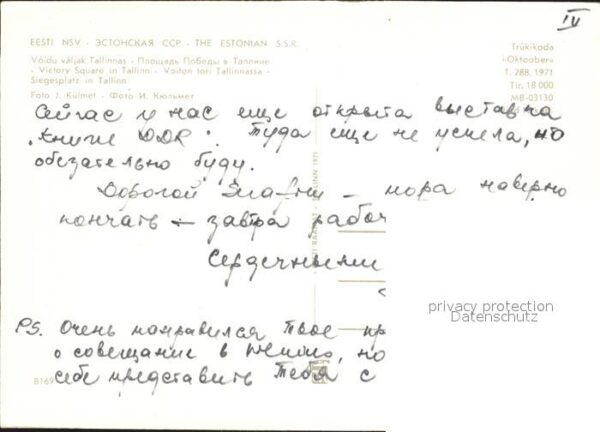 IV
EESTI NSV · ЭСТОНСКАЯ ССР · THE ESTONIAN S.S.R.
Võidu väljak Tallinnas · Площадь Победы в Таллине
· Victory Square in Tallinn · Voiton tori Tallinnassa ·
Siegesplatz in Tallinn
Foto J. Külmet · Фото И. Кюльмет
Trükikoda
«Oktoober»
T. 288. 1971
Tir. 18 000
MB-03130
Сейчас у нас еще открыта выставка
"Книги DDR". Туда еще не успела, но
обезательно буду.
Дорогой — пора наверно
кончать — завтра рабоч
Сердечными
PS. Очень понравился Твое пр
о совещание в но
себе представить Тебя с
privacy protection
Datenschutz
B169